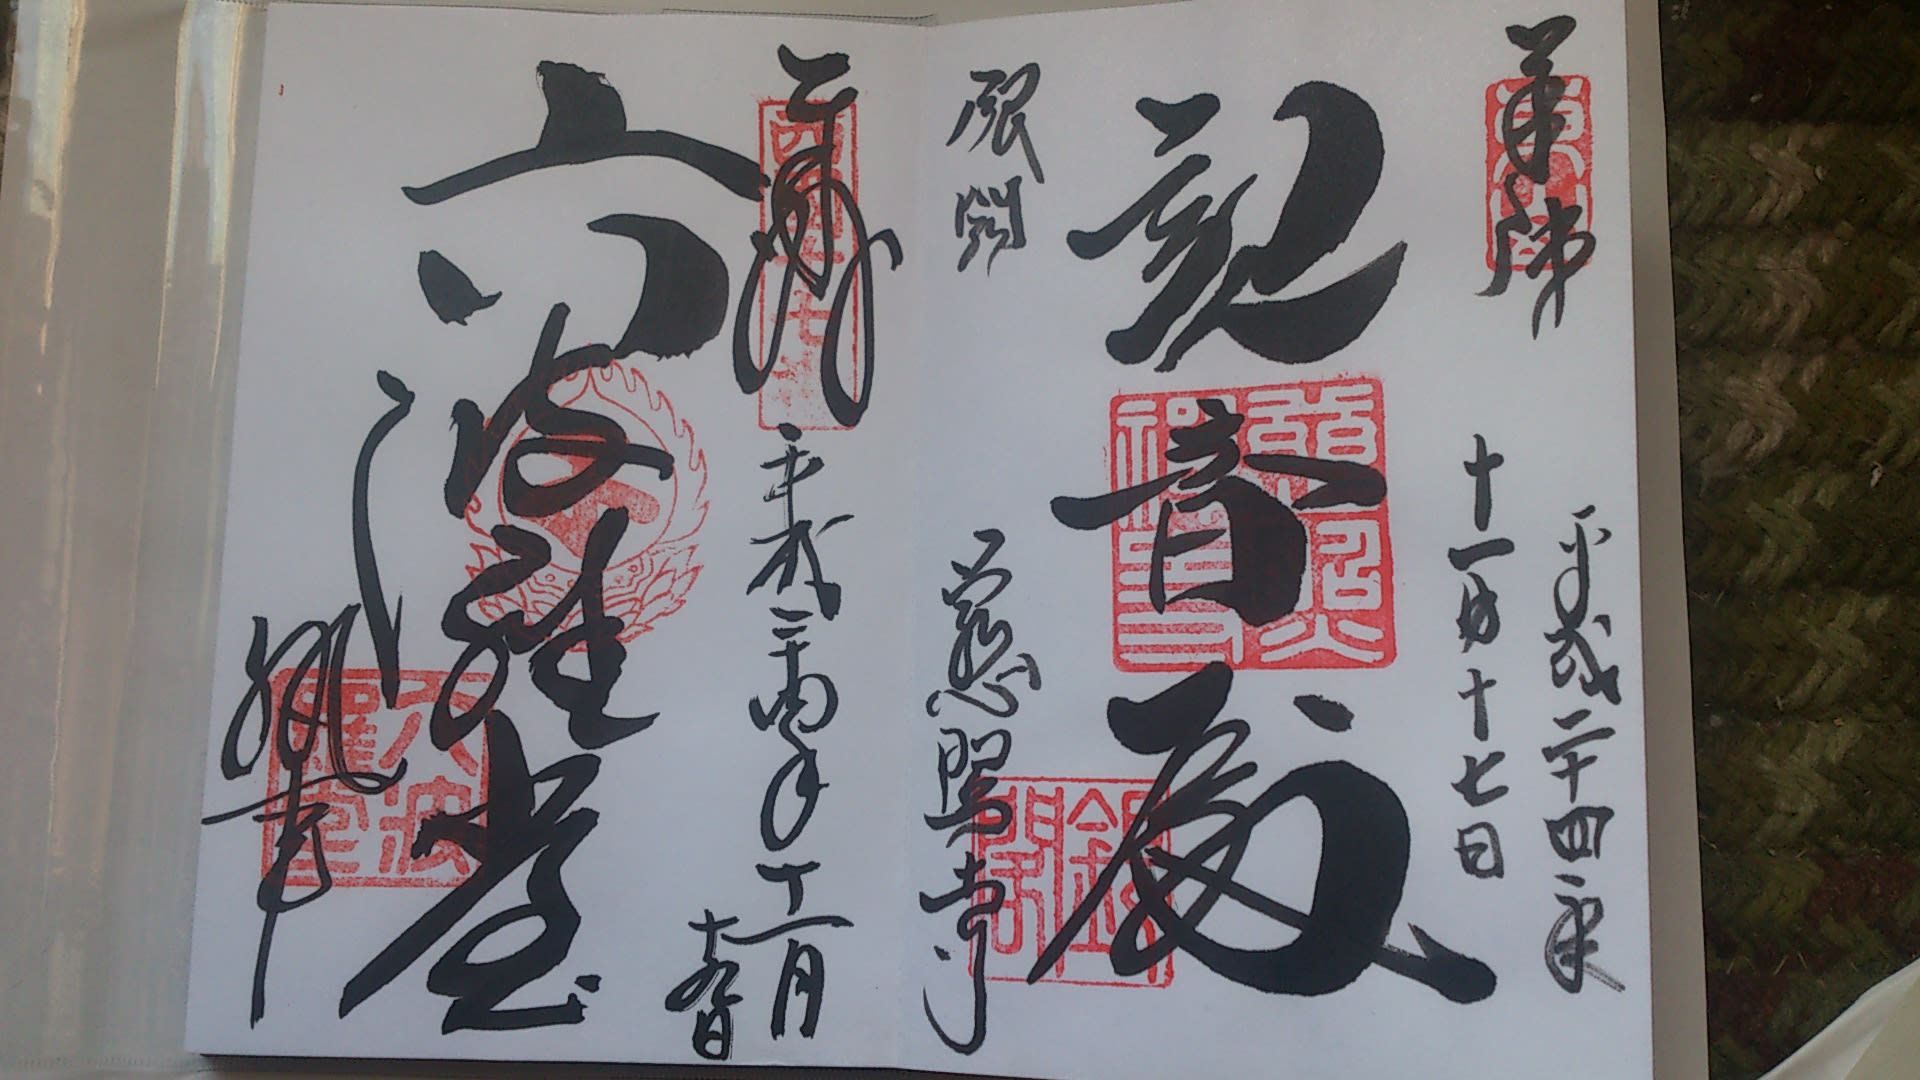 奉拝
平成二十四年
十一月十七日
観音殿
慈照禪寺
銀閣
慈照寺
銀閣
奉拝
平成二十四年十一月
六波羅堂
六波羅堂